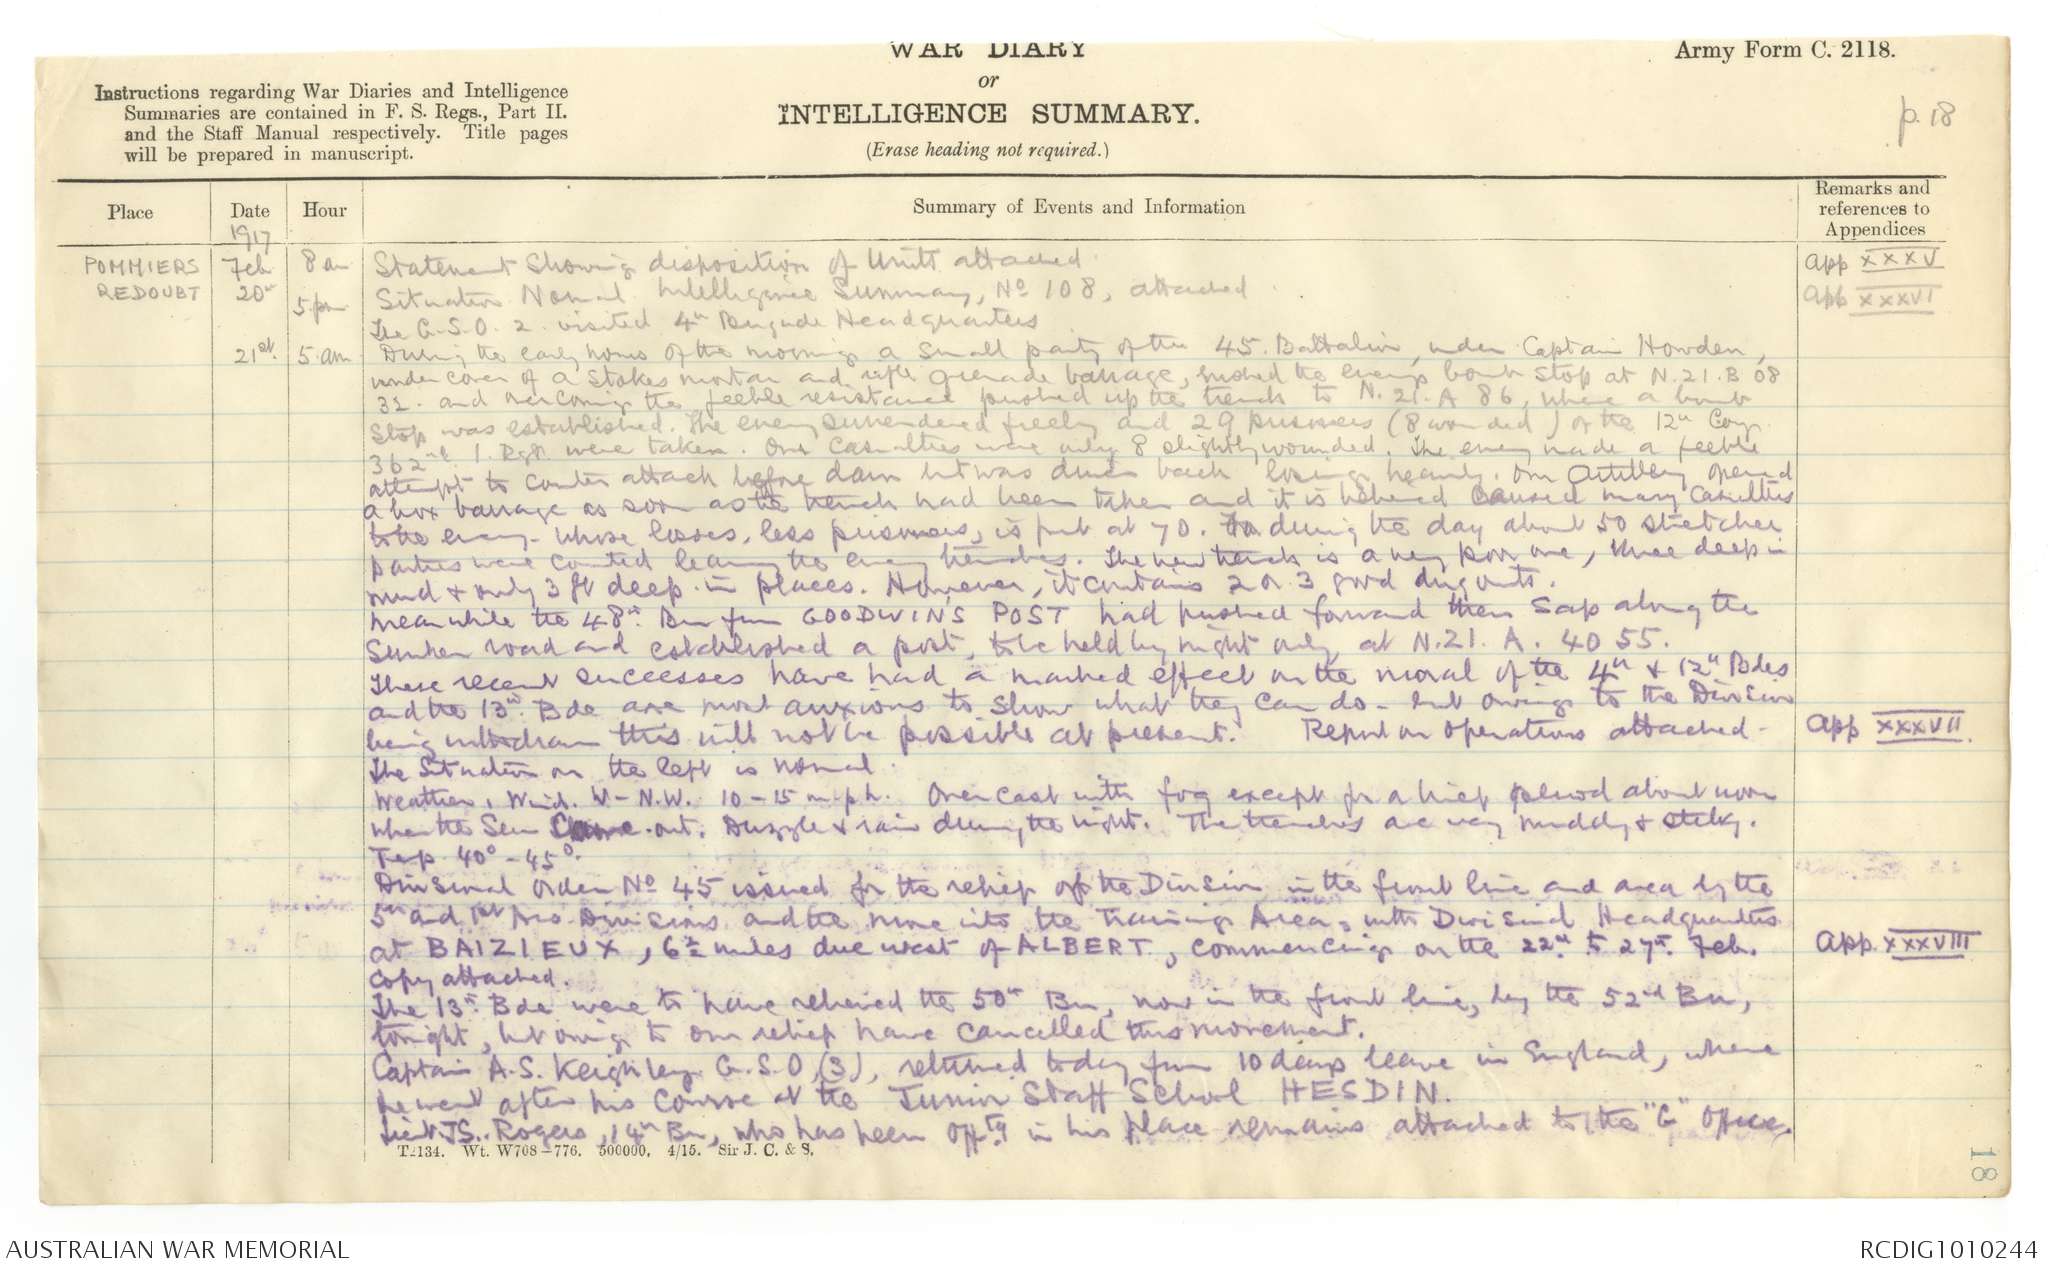 WAR DIARY
or
INTELLIGENCE SUMMARY.
(Erase heading not required.)
Army Form C. 2118.
Instructions regarding War Diaries and Intelligence
Summaries are contained in F. S. Regs., Part II.
and the Staff Manual respectively. Title pages
will be prepared in manuscript.
p. 18
Place
Date
Hour
Summary of Events and Information
Remarks and
references to
Appendices
1917
POMMIERS Feb 8 am Statement Showing disposition of Units attached. App XXXV
REDOUBT 20th 5 pm Situation Normal. Intelligence Summary, No 108, attached. App XXXVI
The G.S.O. 2. visited 4th Brigade Headquarters
21st. 5 am During the early hours of the morning a small party of the 45. Battalion, under Captain Howden,
under cover of a Stokes mortar and rifle grenade barrage, rushed the enemy bomb stop at N.21.B 08
32. and overcoming the feeble resistance pushed up the trench to N.21.A 86, where a bomb
stop was established. The enemy surrendered freely and 29 prisoners (8 wounded) of the 12th Coy
362nd I. Rgt. were taken. Our casualties were only 8 slightly wounded. The enemy made a feeble
attempt to counter attack before dawn but was driven back losing heavily. Our Artillery opened
a box barrage as soon as the trench had been taken and it is believed caused many casualties
to the enemy - whose losses, less prisoners, is put at 70. during the day about 50 stretcher
parties were counted leaving the enemy trenches. The new trench is a very poor one, knee deep in
mud & only 3 ft deep in places. However, it contains 2 or 3 good dug outs.
Meanwhile the 48th. Bn from GOODWINS POST had pushed forward their Sap along the
Sunken road and established a post, to be held by night only at N.21. A. 40 55.
These recent successes have had a marked effect on the moral of the 4th & 12th Bdes
and the 13th. Bde are most anxious to show what they can do - but owing to the Division
being withdrawn this will not be possible at present. Report on operations attached - App XXXVII.
The Situation on the left is normal.
Weather. Wind. W-N.W. 10-15 m.p.h. Overcast with fog except for a brief period about noon
when the Sun came out. Drizzle & rain during the night. The trenches are very muddy & sticky.
Temp 40° - 45°.
Divisional Order No 45 issued for the relief of the Division in the front line and area by the
5th and 1st Aus Divisions and the move into the Training Area, with Divisional Headquarters
at BAIZIEUX, 6½ miles due west of ALBERT, commencing on the 22nd. to 27th. Feb. App. XXXVIII
Copy attached.
The 13th. Bde were to have relieved the 50th Bn, now in the front line, by the 52nd Bn,
tonight, but owing to our relief have cancelled this movement.
Captain A.S. Keighley G.S.O.(3), returned today from 10 days leave in England, where
he went after his course at the Junior Staff School HESDIN.
Lieut. J.S. Rogers, 14th Bn, who has been offtg in his place remains attached to the "G" Office.
T2134. Wt. W708-776. 500000. 4/15. Sir J. C. & S.
18
AUSTRALIAN WAR MEMORIAL
RCDIG1010244